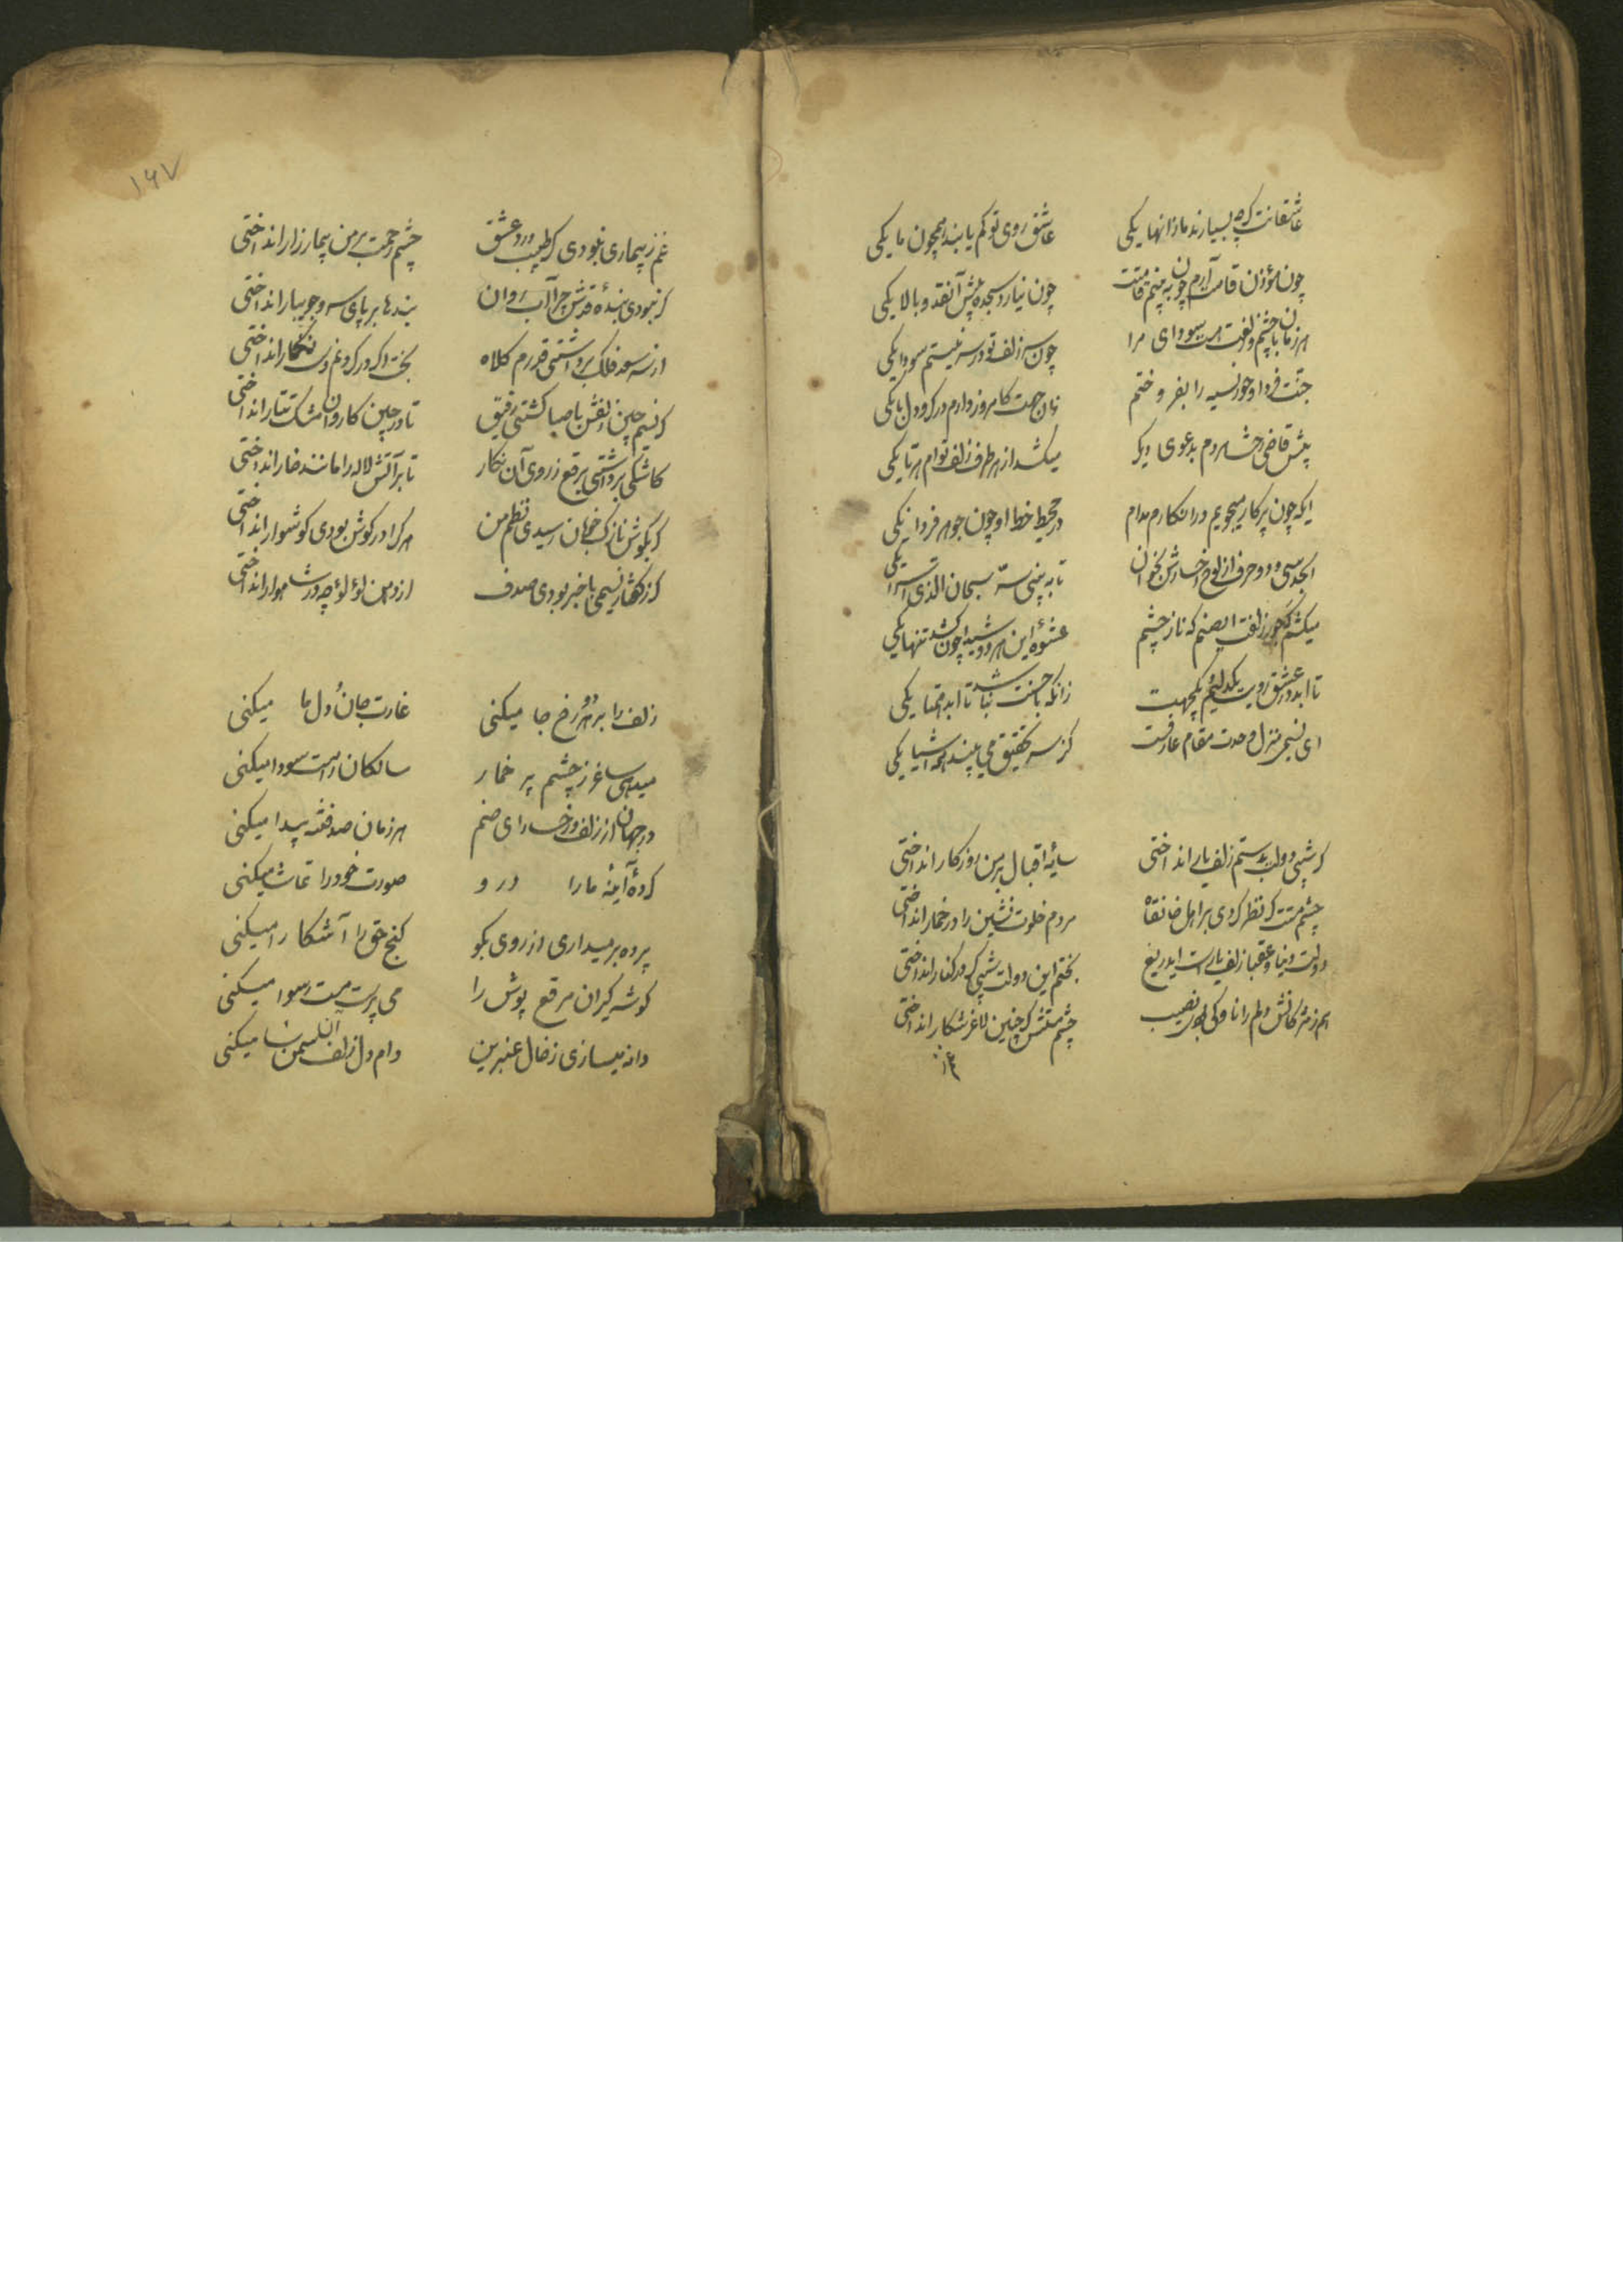 عاشقانت گرچه بسیارند ما زانها یکی
عاشق روی تو کم یابند همچون ما یکی
چون مؤذن قامت آرم چون به بینم قامتت
چون نیارد سجده پیش آنقد و بالا یکی
هر زمان با چشم و زلفت هست سودای مرا
چون سر زلف تو در سر نیستم سودا یکی
جنت فردا و حور نسیه را بفروختم
زان جهت کامروز دارم در کرو دل با یکی
پیش قاضی هردم بدعوی دیگر
میکشد از هر طرف زلف توام هر تا یکی
ایکه چون پرکار میجویم درا انکارم مدام
در محیط خط او چون جوهر فردا یکی
ابجد سی و دو حرف از لوح رخسارش بخوان
تا به بینی سرّ سبحان الذی اسرا یکی
میکشم جور زلفت ایصنم که ناز چشم
عشوه این هر دو شیدا چون کشد تنها یکی
تا ابد در عشق رویت یکدلیم و یکجهت
زانکه با حسنت نباشد تا ابد همتا یکی
ای نسیمی منزل وحدت مقام عارفست
کز سر تحقیق می بیند همه اشیا یکی
کر شبی دولت بدستم زلف یار انداختی
سایه اقبال بر من روزکار انداختی
چشم مستت کر نظر کردی بر اهل خانقاه
مردم خلوت نشین را در خمار انداختی
دولت دنیا و عقبا زلف یارست ایدریغ
بختم این دولت شبی کر در کنار انداختی
هم ز مژکانش دلم را ناوکی بودی نصیب
چشم مستش کر چنین لاغر شکار انداختی
۱۶۷
غم ز بیماری نبودی کر طبیب درد عشق
چشم رحمت بر من بیمار زار انداختی
کر نبودی بنده قدش چرا آب روان
بندها بر پای سرو جویبار انداختی
از سر سعد فلک برداشتی قدرم کلاه
بخت اکر در کردنم دست نکار انداختی
کر نسیم چین زلفش با صبا کشتی رفیق
تا در چین کاروان مشک تتار انداختی
کاشکی برداشتی برقع ز روی آن نکار
تا بر آتش لاله را مانند خار انداختی
کر بکوش نازک خوبان رسیدی نظم من
هرکرا در کوش بودی کوشوار انداختی
کر ز کفتار نسیمی با خبر بودی صدف
از دهن لؤلؤ چه در شاهوار انداختی
زلف را بر هر دو رخ جا میکنی
غارت جان و دل ما میکنی
میدهی ساغر ز چشم پر خمار
سالکان را مست سودا میکنی
در جهان از زلف و رخسار ای صنم
هر زمان صد فتنه پیدا میکنی
کرده آینه ما را در و
صورت خود را تماشا میکنی
پرده بر میداری از روی نکو
کنج حق را آشکارا میکنی
کوشه کیران مرقع پوش را
می پرست و مست و رسوا میکنی
دانه میسازی ز خال عنبرین
دام دل زلف سمن سا میکنی